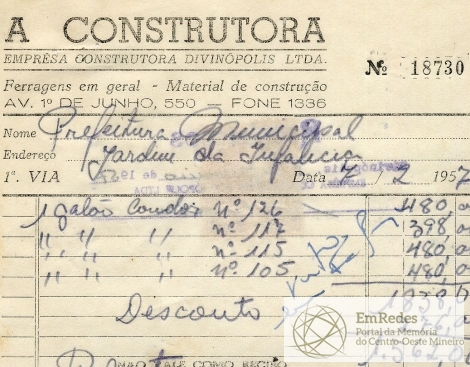 A CONSTRUTORA
EMPRÊSA CONSTRUTORA DIVINÓPOLIS LTDA.
Nº 18730
Ferragens em geral - Material de construção
AV. 1º DE JUNHO, 550 — FONE 1336
Nome Prefeitura Municipal
Endereço Jardim da Infancia
1ª. VIA Data 7 / 2 1957
1 galão Condor nº 126 480,00
" " " nº 117 398,00
" " " nº 115 480,00
" " " nº 105 480,00
Desconto
EmRedes
Portal da Memória
do Centro-Oeste Mineiro
NÃO VALE COMO RECIBO